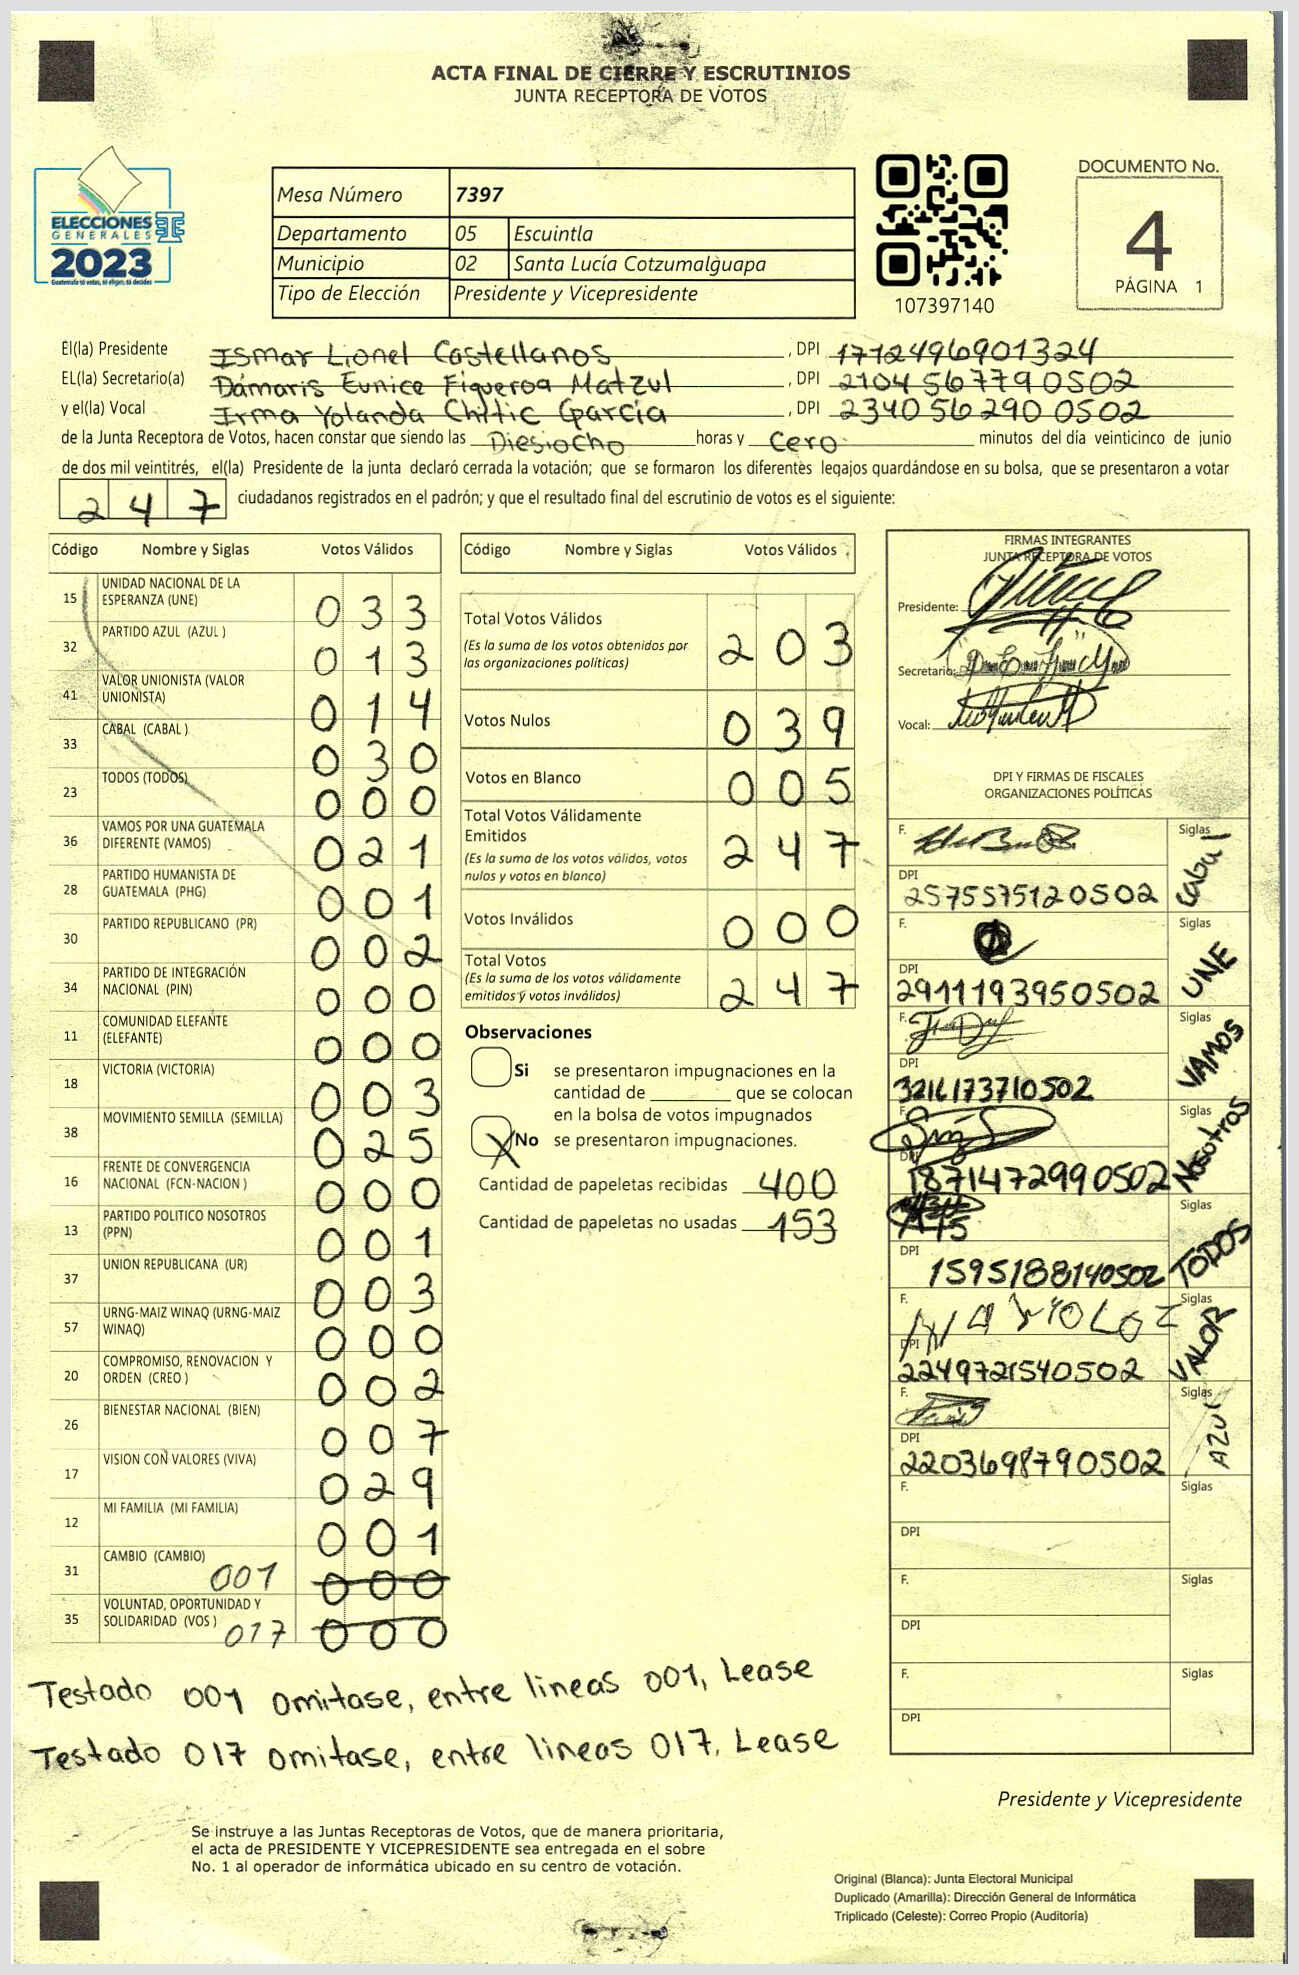 ACTA FINAL DE CIERRE Y ESCRUTINIOS
JUNTA RECEPTORA DE VOTOS
ELECCIONES
GENERALES
2023
Guatemala tú votas, tú eliges, tú decides
Mesa Número 7397
Departamento 05 Escuintla
Municipio 02 Santa Lucía Cotzumalguapa
Tipo de Elección Presidente y Vicepresidente
107397140
DOCUMENTO No.
4
PÁGINA 1
El(la) Presidente Ismar Lionel Castellanos, DPI 1712496901324
EL(la) Secretario(a) Dámaris Eunice Figueroa Matzul, DPI 2104567790502
y el(la) Vocal Irma Yolanda Chitic García, DPI 2340562900502
de la Junta Receptora de Votos, hacen constar que siendo las Diesiocho horas y Cero minutos del día veinticinco de junio
de dos mil veintitrés, el(la) Presidente de la junta declaró cerrada la votación; que se formaron los diferentes legajos guardándose en su bolsa, que se presentaron a votar
247 ciudadanos registrados en el padrón; y que el resultado final del escrutinio de votos es el siguiente:
Código Nombre y Siglas Votos Válidos
15 UNIDAD NACIONAL DE LA ESPERANZA (UNE) 033
32 PARTIDO AZUL (AZUL ) 013
41 VALOR UNIONISTA (VALOR UNIONISTA) 014
33 CABAL (CABAL ) 030
23 TODOS (TODOS) 000
36 VAMOS POR UNA GUATEMALA DIFERENTE (VAMOS) 021
28 PARTIDO HUMANISTA DE GUATEMALA (PHG) 001
30 PARTIDO REPUBLICANO (PR) 002
34 PARTIDO DE INTEGRACIÓN NACIONAL (PIN) 000
11 COMUNIDAD ELEFANTE (ELEFANTE) 000
18 VICTORIA (VICTORIA) 003
38 MOVIMIENTO SEMILLA (SEMILLA) 025
16 FRENTE DE CONVERGENCIA NACIONAL (FCN-NACION ) 000
13 PARTIDO POLITICO NOSOTROS (PPN) 001
37 UNION REPUBLICANA (UR) 003
57 URNG-MAIZ WINAQ (URNG-MAIZ WINAQ) 000
20 COMPROMISO, RENOVACION Y ORDEN (CREO ) 002
26 BIENESTAR NACIONAL (BIEN) 007
17 VISION CON VALORES (VIVA) 029
12 MI FAMILIA (MI FAMILIA) 001
31 CAMBIO (CAMBIO) 001 000
35 VOLUNTAD, OPORTUNIDAD Y SOLIDARIDAD (VOS ) 017 000
Código Nombre y Siglas Votos Válidos
Total Votos Válidos 203
(Es la suma de los votos obtenidos por
las organizaciones políticas)
Votos Nulos 039
Votos en Blanco 005
Total Votos Válidamente
Emitidos 247
(Es la suma de los votos válidos, votos
nulos y votos en blanco)
Votos Inválidos 000
Total Votos 247
(Es la suma de los votos válidamente
emitidos y votos inválidos)
Observaciones
Si se presentaron impugnaciones en la
cantidad de ________ que se colocan
en la bolsa de votos impugnados
X No se presentaron impugnaciones.
Cantidad de papeletas recibidas 400
Cantidad de papeletas no usadas 153
FIRMAS INTEGRANTES
JUNTA RECEPTORA DE VOTOS
Presidente:
Secretario:
Vocal:
DPI Y FIRMAS DE FISCALES
ORGANIZACIONES POLÍTICAS
F. Siglas Cabal
DPI 2575575120502
F. Siglas UNE
DPI 2911193950502
F. Siglas VAMOS
DPI 3216173710502
F. Siglas Nosotros
DPI 1871472990502
Siglas TODOS
DPI 1595188140502
F. Siglas VALOR
DPI 2249721540502
F. Siglas AZUL
DPI 2203698790502
F. Siglas
DPI
F. Siglas
DPI
F. Siglas
DPI
Testado 001 omitase, entre lineas 001, Lease
Testado 017 omitase, entre lineas 017, Lease
Presidente y Vicepresidente
Se instruye a las Juntas Receptoras de Votos, que de manera prioritaria,
el acta de PRESIDENTE Y VICEPRESIDENTE sea entregada en el sobre
No. 1 al operador de informática ubicado en su centro de votación.
Original (Blanca): Junta Electoral Municipal
Duplicado (Amarilla): Dirección General de Informática
Triplicado (Celeste): Correo Propio (Auditoría)